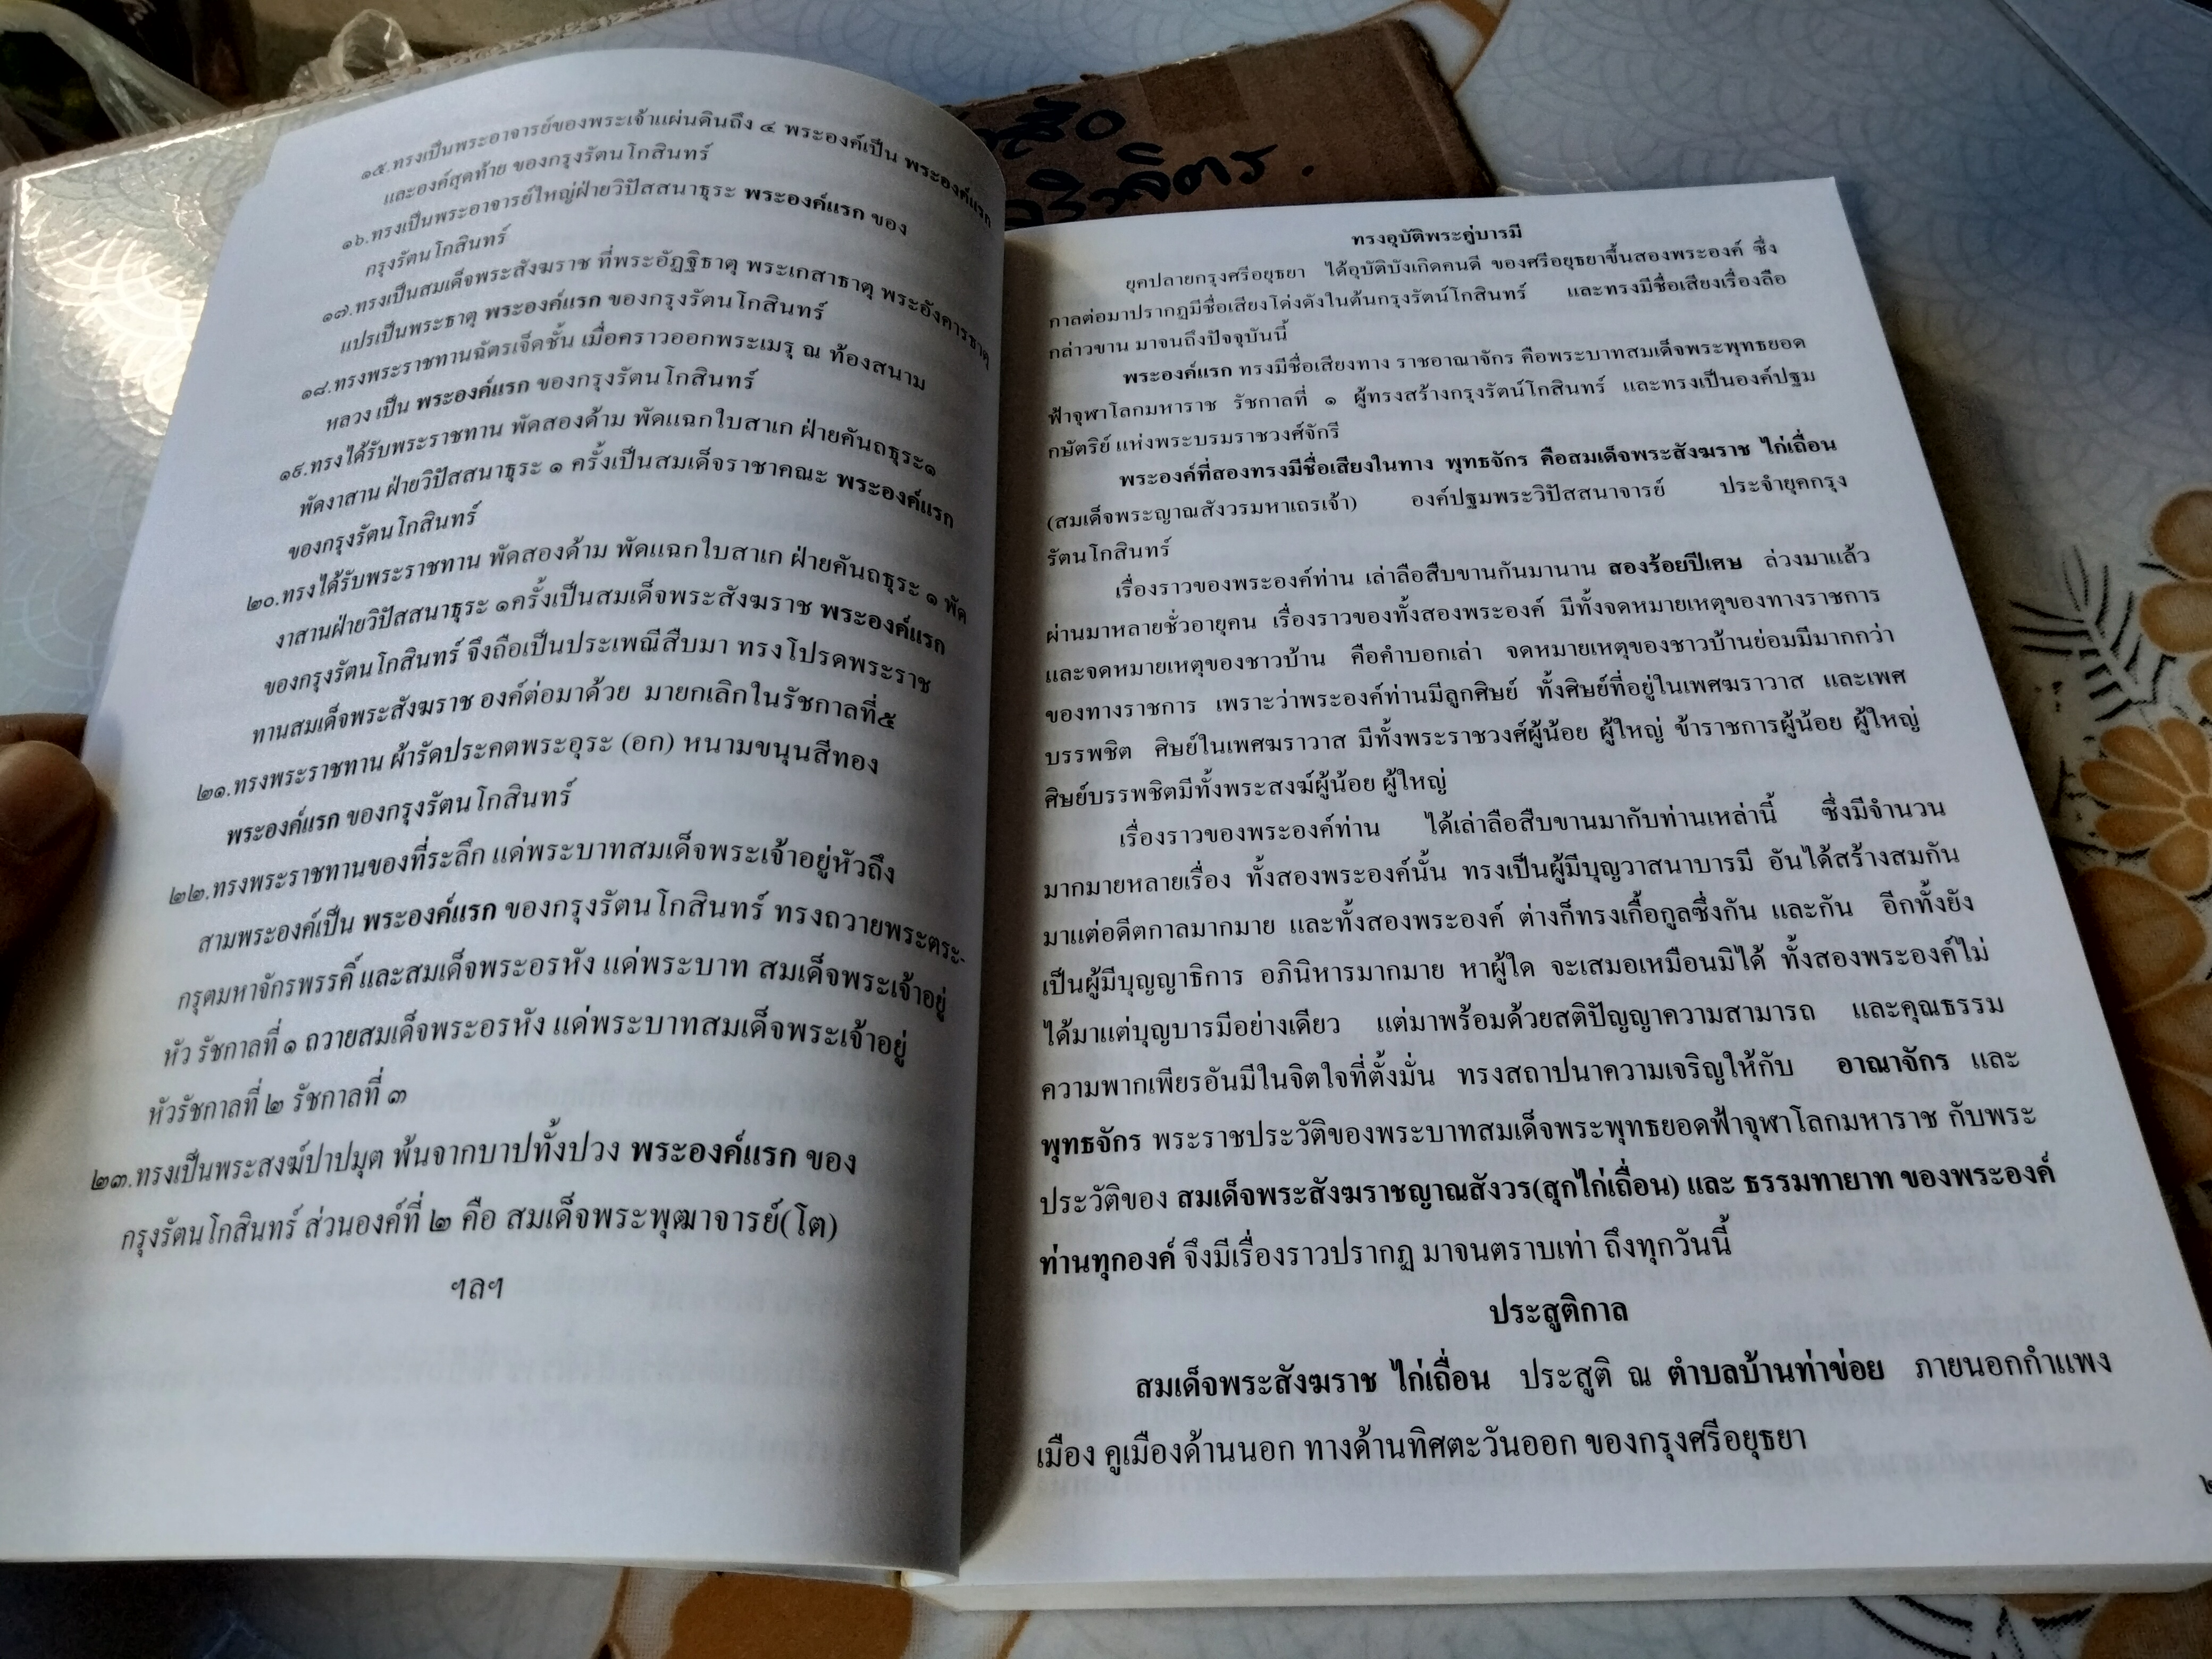 ๑๕.ทรงเป็นพระอาจารย์ของพระเจ้าแผ่นดินถึง ๔ พระองค์เป็น พระองค์แรก
และองค์สุดท้าย ของกรุงรัตนโกสินทร์
๑๖.ทรงเป็นพระอาจารย์ใหญ่ฝ่ายวิปัสสนาธุระ พระองค์แรก ของ
กรุงรัตนโกสินทร์
๑๗.ทรงเป็นสมเด็จพระสังฆราช ที่พระอัฏฐิธาตุ พระเกสาธาตุ พระอังคารธาตุ
แปรเป็นพระธาตุ พระองค์แรก ของกรุงรัตนโกสินทร์
๑๘.ทรงพระราชทานฉัตรเจ็ดชั้น เมื่อคราวออกพระเมรุ ณ ท้องสนาม
หลวง เป็น พระองค์แรก ของกรุงรัตนโกสินทร์
๑๙.ทรงได้รับพระราชทาน พัดสองด้าม พัดแฉกใบสาเก ฝ่ายคันถธุระ๑
พัดงาสาน ฝ่ายวิปัสสนาธุระ ๑ ครั้งเป็นสมเด็จราชาคณะ พระองค์แรก
ของกรุงรัตนโกสินทร์
๒๐.ทรงได้รับพระราชทาน พัดสองด้าม พัดแฉกใบสาเก ฝ่ายคันถธุระ ๑ พัด
งาสานฝ่ายวิปัสสนาธุระ ๑ครั้งเป็นสมเด็จพระสังฆราช พระองค์แรก
ของกรุงรัตนโกสินทร์ จึงถือเป็นประเพณีสืบมา ทรงโปรดพระราช
ทานสมเด็จพระสังฆราช องค์ต่อมาด้วย มายกเลิกในรัชกาลที่๕
๒๑.ทรงพระราชทาน ผ้ารัดประคตพระอุระ (อก) หนามขนุนสีทอง
พระองค์แรก ของกรุงรัตนโกสินทร์
๒๒.ทรงพระราชทานของที่ระลึก แด่พระบาทสมเด็จพระเจ้าอยู่หัวถึง
สามพระองค์เป็น พระองค์แรก ของกรุงรัตนโกสินทร์ ทรงถวายพระตระ-
กรุตมหาจักรพรรคิ์ และสมเด็จพระอรหัง แด่พระบาท สมเด็จพระเจ้าอยู่
หัว รัชกาลที่ ๑ ถวายสมเด็จพระอรหัง แด่พระบาทสมเด็จพระเจ้าอยู่
หัวรัชกาลที่ ๒ รัชกาลที่ ๓
๒๓.ทรงเป็นพระสงฆ์ปาปมุต พ้นจากบาปทั้งปวง พระองค์แรก ของ
กรุงรัตนโกสินทร์ ส่วนองค์ที่ ๒ คือ สมเด็จพระพุฒาจารย์(โต)
ฯลฯ
ทรงอุบัติพระคู่บารมี
ยุคปลายกรุงศรีอยุธยา ได้อุบัติบังเกิดคนดี ของศรีอยุธยาขึ้นสองพระองค์ ซึ่ง
กาลต่อมาปรากฏมีชื่อเสียงโด่งดังในต้นกรุงรัตน์โกสินทร์ และทรงมีชื่อเสียงเรื่องลือ
กล่าวขาน มาจนถึงปัจจุบันนี้
พระองค์แรก ทรงมีชื่อเสียงทาง ราชอาณาจักร คือพระบาทสมเด็จพระพุทธยอด
ฟ้าจุฬาโลกมหาราช รัชกาลที่ ๑ ผู้ทรงสร้างกรุงรัตน์โกสินทร์ และทรงเป็นองค์ปฐม
กษัตริย์ แห่งพระบรมราชวงศ์จักรี
พระองค์ที่สองทรงมีชื่อเสียงในทาง พุทธจักร คือสมเด็จพระสังฆราช ไก่เถื่อน
(สมเด็จพระญาณสังวรมหาเถรเจ้า) องค์ปฐมพระวิปัสสนาจารย์ ประจำยุคกรุง
รัตนโกสินทร์
เรื่องราวของพระองค์ท่าน เล่าลือสืบขานกันมานาน สองร้อยปีเศษ ล่วงมาแล้ว
ผ่านมาหลายชั่วอายุคน เรื่องราวของทั้งสองพระองค์ มีทั้งจดหมายเหตุของทางราชการ
และจดหมายเหตุของชาวบ้าน คือคำบอกเล่า จดหมายเหตุของชาวบ้านย่อมมีมากกว่า
ของทางราชการ เพราะว่าพระองค์ท่านมีลูกศิษย์ ทั้งศิษย์ที่อยู่ในเพศฆราวาส และเพศ
บรรพชิต ศิษย์ในเพศฆราวาส มีทั้งพระราชวงศ์ผู้น้อย ผู้ใหญ่ ข้าราชการผู้น้อย ผู้ใหญ่
ศิษย์บรรพชิตมีทั้งพระสงฆ์ผู้น้อย ผู้ใหญ่
เรื่องราวของพระองค์ท่าน ได้เล่าลือสืบขานมากับท่านเหล่านี้ ซึ่งมีจำนวน
มากมายหลายเรื่อง ทั้งสองพระองค์นั้น ทรงเป็นผู้มีบุญวาสนาบารมี อันได้สร้างสมกัน
มาแต่อดีตกาลมากมาย และทั้งสองพระองค์ ต่างก็ทรงเกื้อกูลซึ่งกัน และกัน อีกทั้งยัง
เป็นผู้มีบุญญาธิการ อภินิหารมากมาย หาผู้ใด จะเสมอเหมือนมิได้ ทั้งสองพระองค์ไม่
ได้มาแต่บุญบารมีอย่างเดียว แต่มาพร้อมด้วยสติปัญญาความสามารถ และคุณธรรม
ความพากเพียรอันมีในจิตใจที่ตั้งมั่น ทรงสถาปนาความเจริญให้กับ อาณาจักร และ
พุทธจักร พระราชประวัติของพระบาทสมเด็จพระพุทธยอดฟ้าจุฬาโลกมหาราช กับพระ
ประวัติของ สมเด็จพระสังฆราชญาณสังวร(สุกไก่เถื่อน) และ ธรรมทายาท ของพระองค์
ท่านทุกองค์ จึงมีเรื่องราวปรากฏ มาจนตราบเท่า ถึงทุกวันนี้
ประสูติกาล
สมเด็จพระสังฆราช ไก่เถื่อน ประสูติ ณ ตำบลบ้านท่าข่อย ภายนอกกำแพง
เมือง คูเมืองด้านนอก ทางด้านทิศตะวันออก ของกรุงศรีอยุธยา